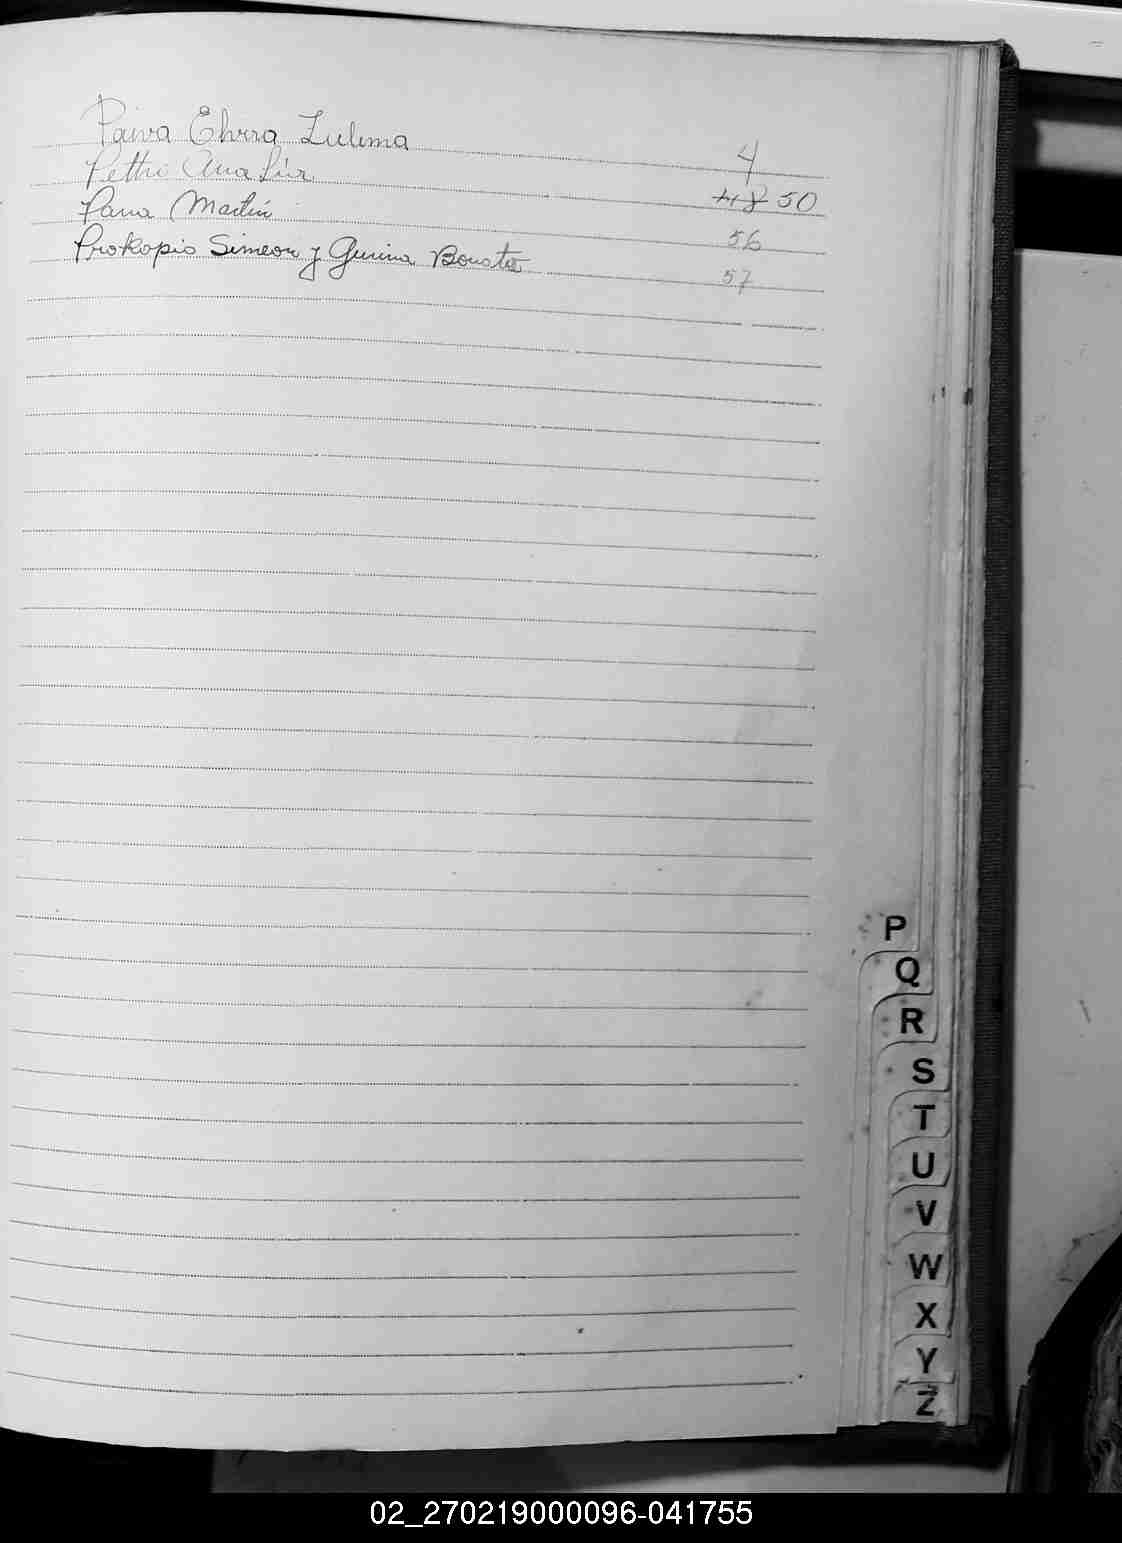 Paiva Elvira Zulema 4
Pettri Ana Luz 48 50
Parra Martín 56
Prokopio Simeon y Gunina Bonato 57
P
Q
R
S
T
U
V
W
X
Y
Z
02_270219000096-041755